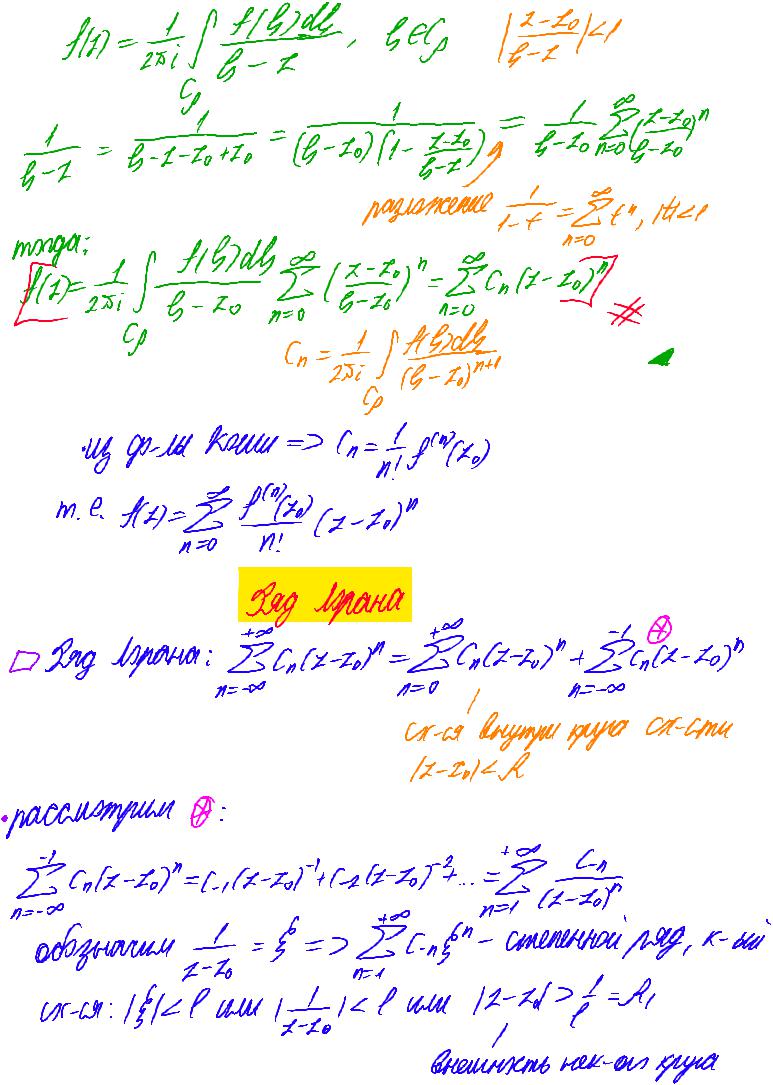 f(z) = 1/(2πi) ∫_{C_ρ} f(ξ)dξ/(ξ - z), ξ ∈ C_ρ |(z - z₀)/(ξ - z)| < 1
1/(ξ - z) = 1/(ξ - z - z₀ + z₀) = 1/((ξ - z₀)(1 - (z - z₀)/(ξ - z))) = 1/(ξ - z₀) ∑_{n=0}^{∞} ((z - z₀)/(ξ - z₀))^n
разложение 1/(1 - t) = ∑_{n=0}^{∞} t^n, |t| < 1
тогда:
f(z) = 1/(2πi) ∫_{C_ρ} f(ξ)dξ/(ξ - z₀) ∑_{n=0}^{∞} ((z - z₀)/(ξ - z₀))^n = ∑_{n=0}^{∞} C_n (z - z₀)^n #
C_n = 1/(2πi) ∫_{C_ρ} f(ξ)dξ/(ξ - z₀)^{n+1}
·из ф-лы Коши => C_n = 1/n! f^{(n)}(z₀)
т.е. f(z) = ∑_{n=0}^{∞} f^{(n)}(z₀)/n! (z - z₀)^n
Ряд Лорана
Ряд Лорана: ∑_{n=-∞}^{+∞} C_n(z - z₀)^n = ∑_{n=0}^{+∞} C_n(z - z₀)^n + ∑_{n=-∞}^{-1} C_n(z - z₀)^n ⊕
сх-ся внутри круга сх-сти
|z - z₀| < R
·рассмотрим ⊕:
∑_{n=-∞}^{-1} C_n(z - z₀)^n = C_{-1}(z - z₀)^{-1} + C_{-2}(z - z₀)^{-2} + ... = ∑_{n=1}^{+∞} C_{-n}/(z - z₀)^n
обозначим 1/(z - z₀) = ξ => ∑_{n=1}^{+∞} C_{-n} ξ^n - степенной ряд, к-ый
сх-ся: |ξ| < ℓ или |1/(z - z₀)| < ℓ или |z - z₀| > 1/ℓ = R₁
внешность нек-ого круга